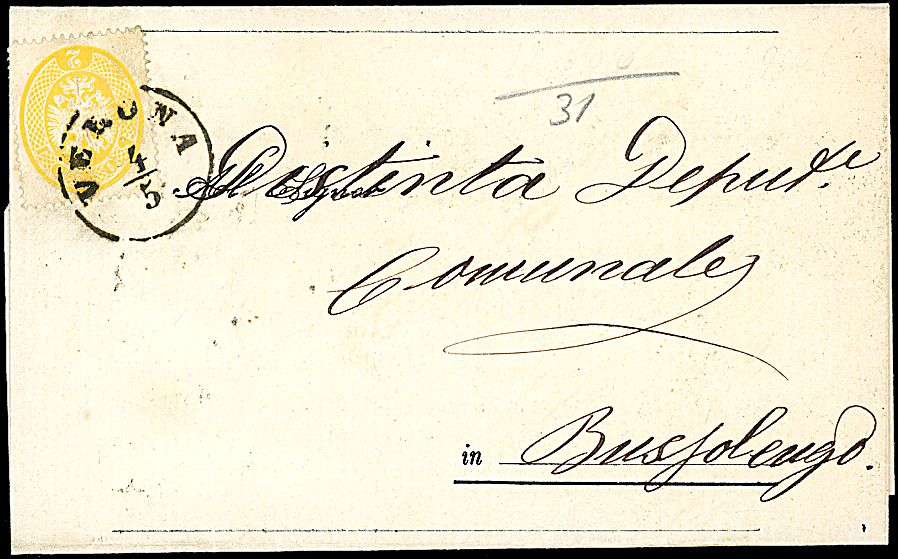 2
VERONA
4/5
31
Distinta Deput.e
Comunale
in Bussolengo.